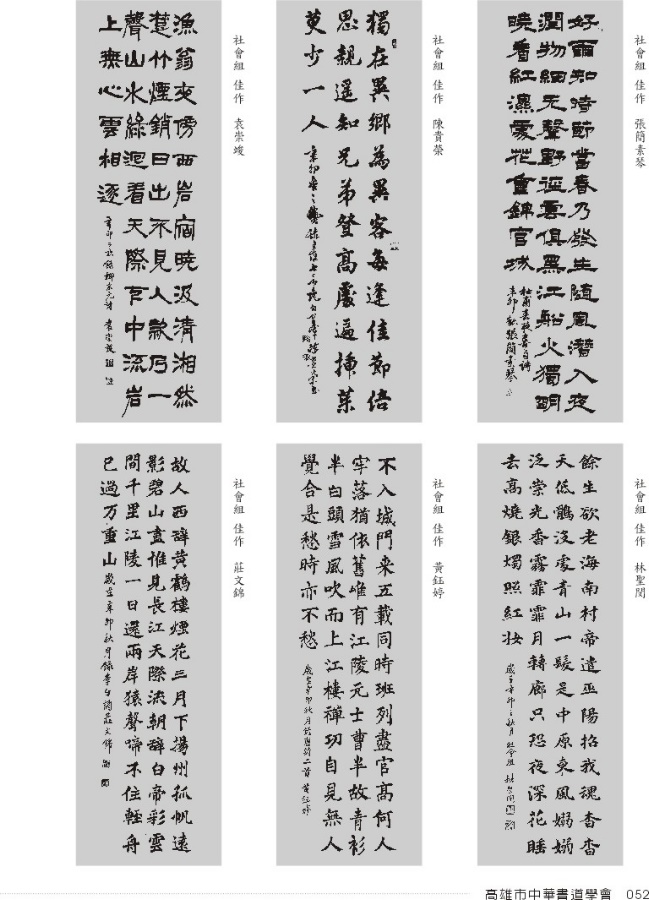 社會組 佳作 張簡素琴
好雨知時節當春乃發生隨風潛入夜
潤物細无聲野徑雲俱黑江船火獨明
曉看紅濕處花重錦官城
杜甫春夜喜雨詩
辛卯秋張簡素琴
社會組 佳作 陳貴榮
獨在異鄉為異客每逢佳節倍
思親遙知兄弟登高處遍插茱
萸少一人
社會組 佳作 袁崇竣
漁翁夜傍西岩宿曉汲清湘然
楚竹煙銷日出不見人欸乃一
聲山水綠迴看天際下中流岩
上無心雲相逐 辛卯之秋錄柳宗元詩 袁崇竣
社會組 佳作 林聖閔
餘生欲老海南村帝遣巫陽招我魂杳杳
天低鶻沒處青山一髮是中原東風嫋嫋
泛崇光香霧霏霏月轉廊只恐夜深花睡
去高燒銀燭照紅妝 歲在辛卯之秋月 社會組 林聖閔
社會組 佳作 黃鈺婷
不入城門來五載同時班列盡官高何人
牢落猶依舊唯有江陵元士曹半故青衫
半白頭雪風吹面上江樓禪功自見無人
覺合是愁時亦不愁 歲在辛卯秋月 二首 黃鈺婷
社會組 佳作 莊文錦
故人西辭黃鶴樓煙花三月下揚州孤帆遠
影碧山盡惟見長江天際流朝辭白帝彩雲
間千里江陵一日還兩岸猿聲啼不住輕舟
已過万重山 歲在辛卯秋月錄李白詩莊文錦
高雄市中華書道學會 052